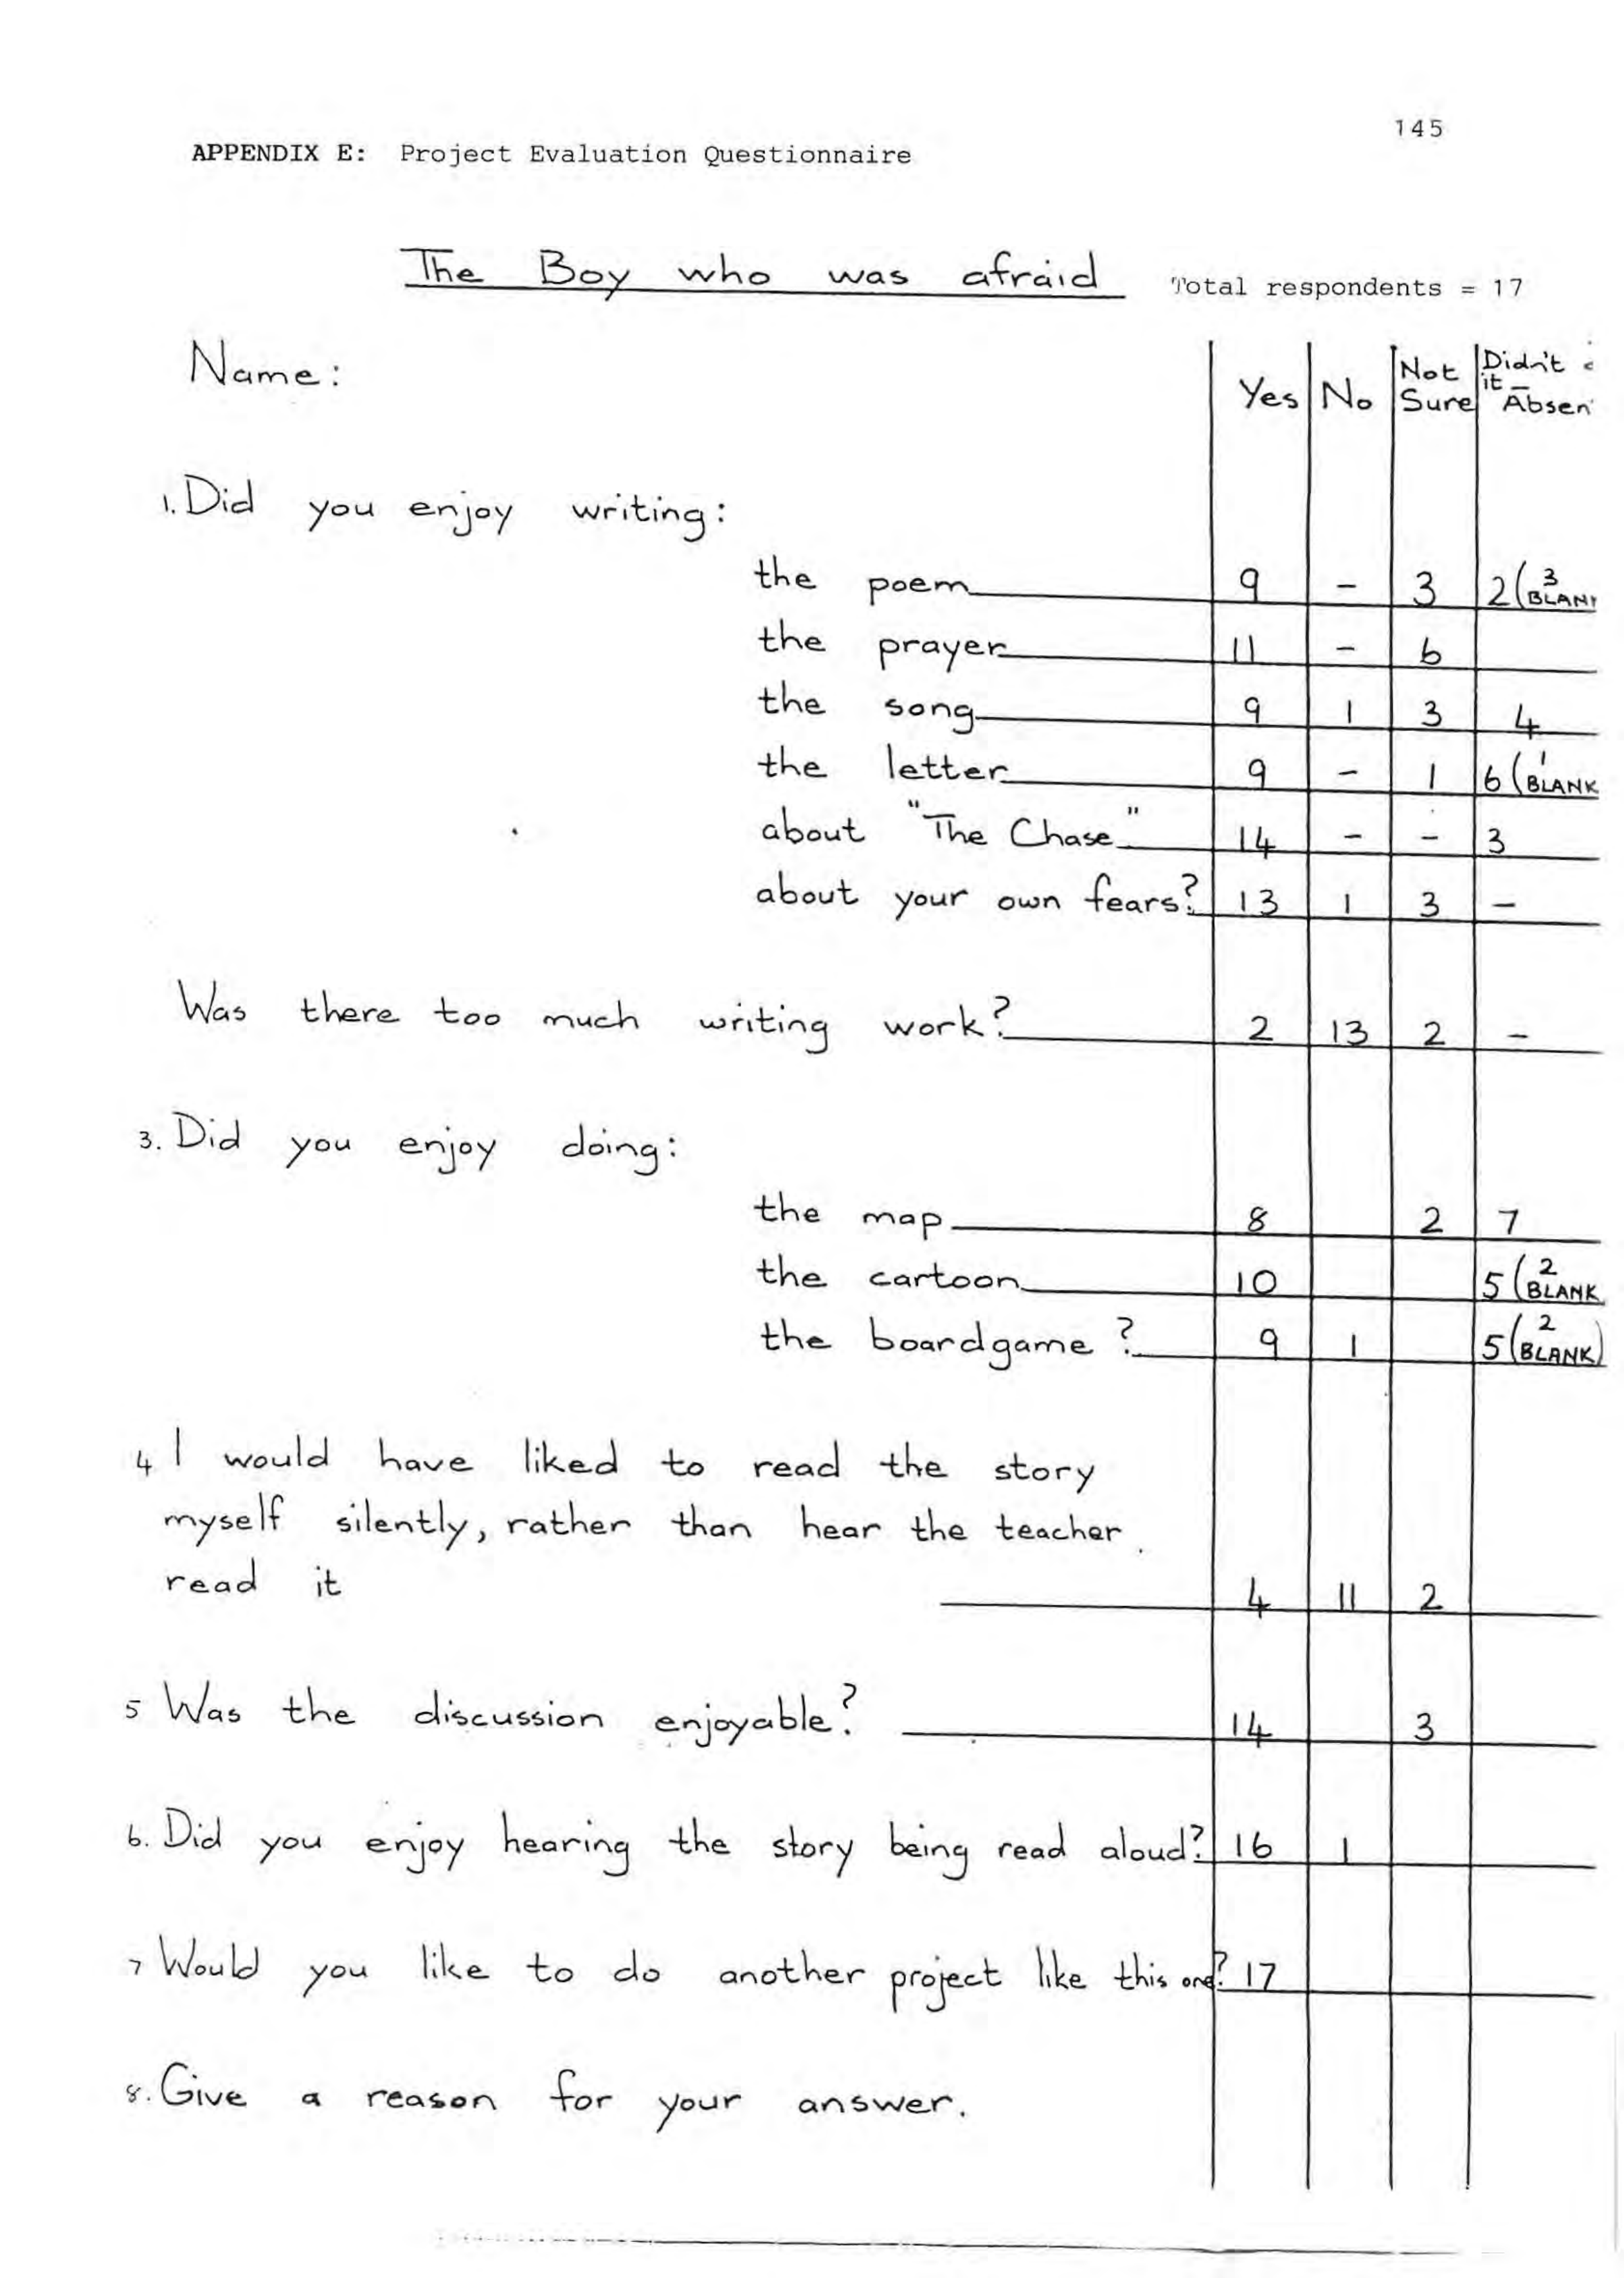 145
APPENDIX E: Project Evaluation Questionnaire
The Boy who was afraid Total respondents = 17
Name: Yes No Not Sure Didn't it – Absen
1. Did you enjoy writing:
the poem 9 – 3 2 (3 BLAN
the prayer 11 – 6
the song 9 1 3 4
the letter 9 – 1 6 (1 BLANK
about "The Chase" 14 – – 3
about your own fears? 13 1 3 –
Was there too much writing work? 2 13 2 –
3. Did you enjoy doing:
the map 8 2 7
the cartoon 10 5 (2 BLANK
the boardgame? 9 1 5 (2 BLANK)
4 I would have liked to read the story
myself silently, rather than hear the teacher
read it 4 11 2
5 Was the discussion enjoyable? 14 3
6. Did you enjoy hearing the story being read aloud? 16 1
7 Would you like to do another project like this one? 17
8. Give a reason for your answer.